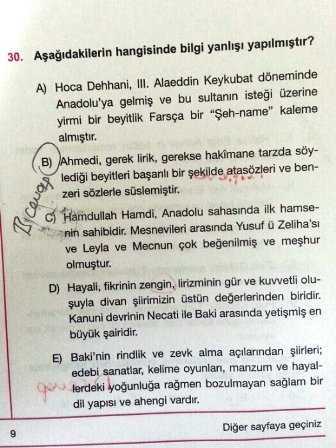 30. Aşağıdakilerin hangisinde bilgi yanlışı yapılmıştır?
A) Hoca Dehhani, III. Alaeddin Keykubat döneminde
Anadolu'ya gelmiş ve bu sultanın isteği üzerine
yirmi bir beyitlik Farsça bir "Şeh-name" kaleme
almıştır.
B) Ahmedi, gerek lirik, gerekse hakîmane tarzda söy-
lediği beyitleri başarılı bir şekilde atasözleri ve ben-
zeri sözlerle süslemiştir.
Hamdullah Hamdi, Anadolu sahasında ilk hamse-
nin sahibidir. Mesnevileri arasında Yusuf ü Zeliha'sı
ve Leyla ve Mecnun çok beğenilmiş ve meşhur
olmuştur.
D) Hayali, fikrinin zengin, lirizminin gür ve kuvvetli olu-
şuyla divan şiirimizin üstün değerlerinden biridir.
Kanuni devrinin Necati ile Baki arasında yetişmiş en
büyük şairidir.
E) Baki'nin rindlik ve zevk alma açılarından şiirleri;
edebi sanatlar, kelime oyunları, manzum ve hayal-
lerdeki yoğunluğa rağmen bozulmayan sağlam bir
dil yapısı ve ahengi vardır.
9
Diğer sayfaya geçiniz